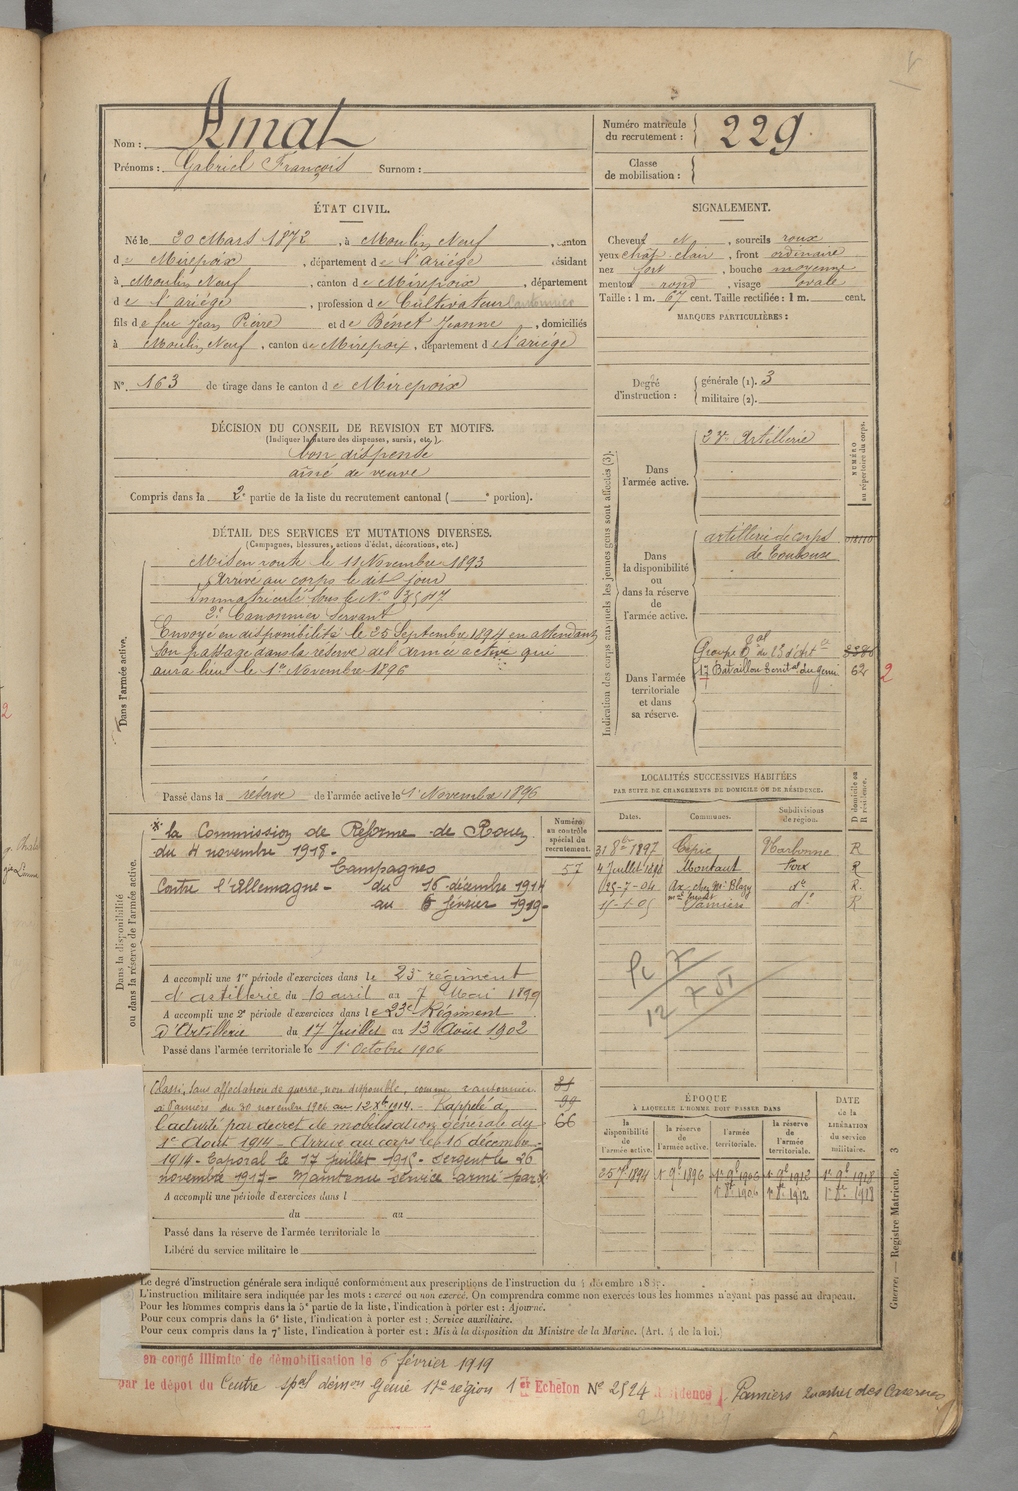 Nom : Amat
Prénoms : Gabriel François Surnom :
Numéro matricule
du recrutement : 229.
Classe
de mobilisation :
ÉTAT CIVIL.
Né le 20 Mars 1872, à Moulin Neuf, canton
de Mirepoix, département de l'Ariége résidant
à Moulin Neuf, canton de Mirepoix, département
de l'Ariége, profession de Cultivateur
fils de feu Jean Pierre et de Bénet Jeanne, domiciliés
à Moulin Neuf, canton de Mirepoix, département de l'Ariége
N° 163 de tirage dans le canton de Mirepoix
SIGNALEMENT.
Cheveux N, sourcils roux
yeux chât clair, front ordinaire
nez fort, bouche moyenne
menton rond, visage ovale
Taille : 1 m. 67 cent. Taille rectifiée : 1 m. cent.
MARQUES PARTICULIÈRES :
Degré
d'instruction :
générale (1). 3
militaire (2).
DÉCISION DU CONSEIL DE REVISION ET MOTIFS.
(Indiquer la nature des dispenses, sursis, etc.)
bon dispensé
aîné de veuve
Compris dans la 2e partie de la liste du recrutement cantonal ( e portion).
DÉTAIL DES SERVICES ET MUTATIONS DIVERSES.
(Campagnes, blessures, actions d'éclat, décorations, etc.)
Dans l'armée active.
Mis en route le 11 Novembre 1893
Arrivé au corps le dit jour
Immatriculé sous le N°
2e Canonnier Servant
Envoyé en disponibilité le 25 Septembre 1894 en attendant
son passage dans la réserve de l'Armée active qui
aura lieu le 1er Novembre 1896
Passé dans la réserve de l'armée active le 1er Novembre 1896
Indication des corps auxquels les jeunes gens sont affectés (3).
NUMÉRO
au répertoire du corps.
Dans
l'armée active.
23e Artillerie
Dans
la disponibilité
ou
dans la réserve
de
l'armée active.
artillerie de corps
de Toulouse
Dans l'armée
territoriale
et dans
sa réserve.
Groupe tal du 23 d'Art
17 Bataillon territal du génie 62 2
LOCALITÉS SUCCESSIVES HABITÉES
PAR SUITE DE CHANGEMENTS DE DOMICILE OU DE RÉSIDENCE.
Dates. Communes. Subdivisions de région. D domicile ou R résidence.
31 8bre 1897 Cépie Narbonne R
4 Juillet 1898 Montaut Foix R
25-7-04 Ax, chez Mr Blazy do R.
Pamiers do R
Dans la disponibilité
ou dans la réserve de l'armée active.
Numéro
au contrôle
spécial du
recrutement.
57
* la Commission de Réforme de Rouen
du 4 novembre 1918.
Campagnes
Contre l'Allemagne - du 16 décembre 1914
au 6 février 1919 -
A accompli une 1re période d'exercices dans le 23e régiment
d'artillerie du 10 avril au 7 Mai 1899
A accompli une 2e période d'exercices dans le 23e Régiment
d'Artillerie du 17 Juillet au 13 Août 1902
Passé dans l'armée territoriale le 1er Octobre 1906
12 7 51
Classé, sans affectation de guerre, non disponible, comme cantonnier
à Pamiers du 30 novembre 1906 au 12 Xbre 1914. - Rappelé à
l'activité par décret de mobilisation générale du
1er Août 1914 - Arrivé au corps le 16 décembre
1914 - Caporal le 17 juillet 1915 - Sergent le 26
novembre 1917 - Maintenu service armé par *
99
66
A accompli une période d'exercices dans l
du au
Passé dans la réserve de l'armée territoriale le
Libéré du service militaire le
ÉPOQUE
À LAQUELLE L'HOMME DOIT PASSER DANS
la disponibilité de l'armée active. la réserve de l'armée active. l'armée territoriale. la réserve de l'armée territoriale.
DATE de la LIBÉRATION du service militaire.
25 7bre 1894 1er 9bre 1896 1er 9bre 1906 1er 9bre 1912 1er 9bre 1918
1er 8bre 1906 1er 8bre 1912 1er 8bre 1918
Guerre. — Registre Matricule. 3
Le degré d'instruction générale sera indiqué conformément aux prescriptions de l'instruction du 4 décembre
L'instruction militaire sera indiquée par les mots : exercé ou non exercé. On comprendra comme non exercés tous les hommes n'ayant pas passé au drapeau.
Pour les hommes compris dans la 5e partie de la liste, l'indication à porter est : Ajourné.
Pour ceux compris dans la 6e liste, l'indication à porter est : Service auxiliaire.
Pour ceux compris dans la 7e liste, l'indication à porter est : Mis à la disposition du Ministre de la Marine. (Art. 4 de la loi.)
en congé illimité de démobilisation le 6 février 1919
par le dépôt du Centre spal démon Génie 17e région 1er Echelon N° 2524 résidence Pamiers quartier des Casernes